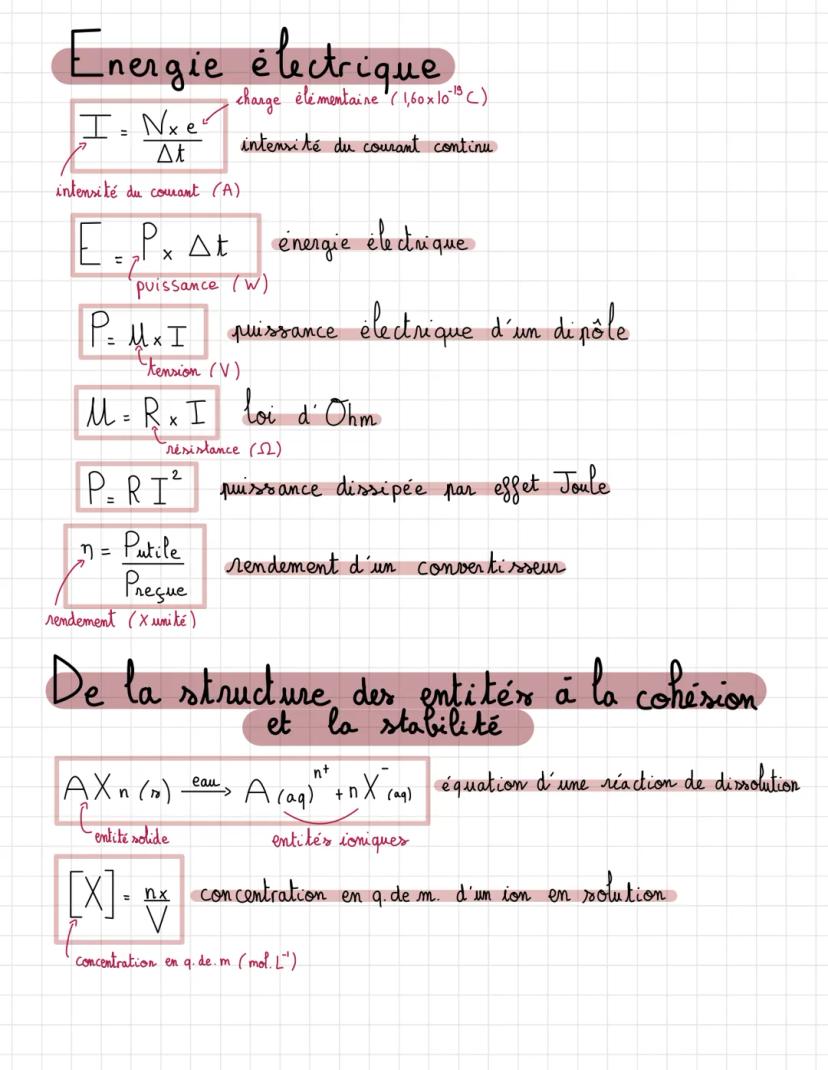 Energie électrique
charge élémentaire (1,60x10⁻¹⁹ C)
I = N x e / Δt
intensité du courant continu
intensité du courant (A)
E = P x Δt
énergie électrique
puissance (W)
P = U x I
puissance électrique d'un dipôle
tension (V)
U = R x I
loi d'Ohm
résistance (Ω)
P = R I²
puissance dissipée par effet Joule
η = Putile / Preçue
rendement d'un convertisseur
rendement (X unité)
De la structure des entités à la cohésion
et la stabilité
AXn (s) —eau→ A(aq)ⁿ⁺ + nX⁻(aq)
équation d'une réaction de dissolution
entité solide
entités ioniques
[X] = nx / V
concentration en q.de m. d'un ion en solution
concentration en q.de.m (mol.L⁻¹)